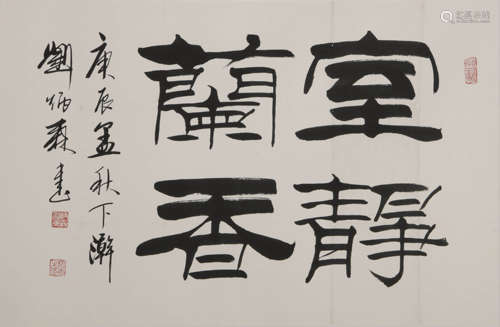 室靜
蘭香
庚辰孟秋下澣
劉炳森書